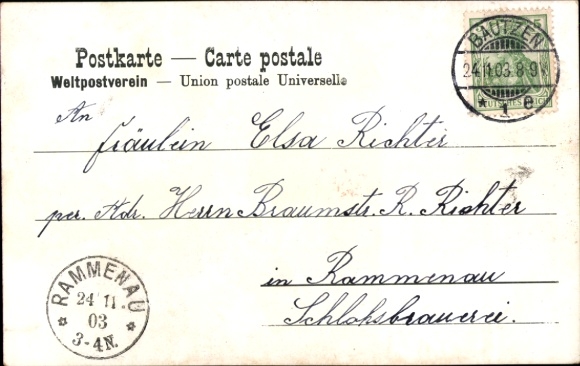 Postkarte — Carte postale
Weltpostverein — Union postale Universelle
BAUTZEN
24.11.03. 8-9V.
* 1 e
DEUTSCHES REICH
An
Fräulein Elsa Richter
per. Adr. Herrn Braumstr. R. Richter
in Rammenau
Schloßbrauerei.
RAMMENAU
24 11.
03
3-4N.